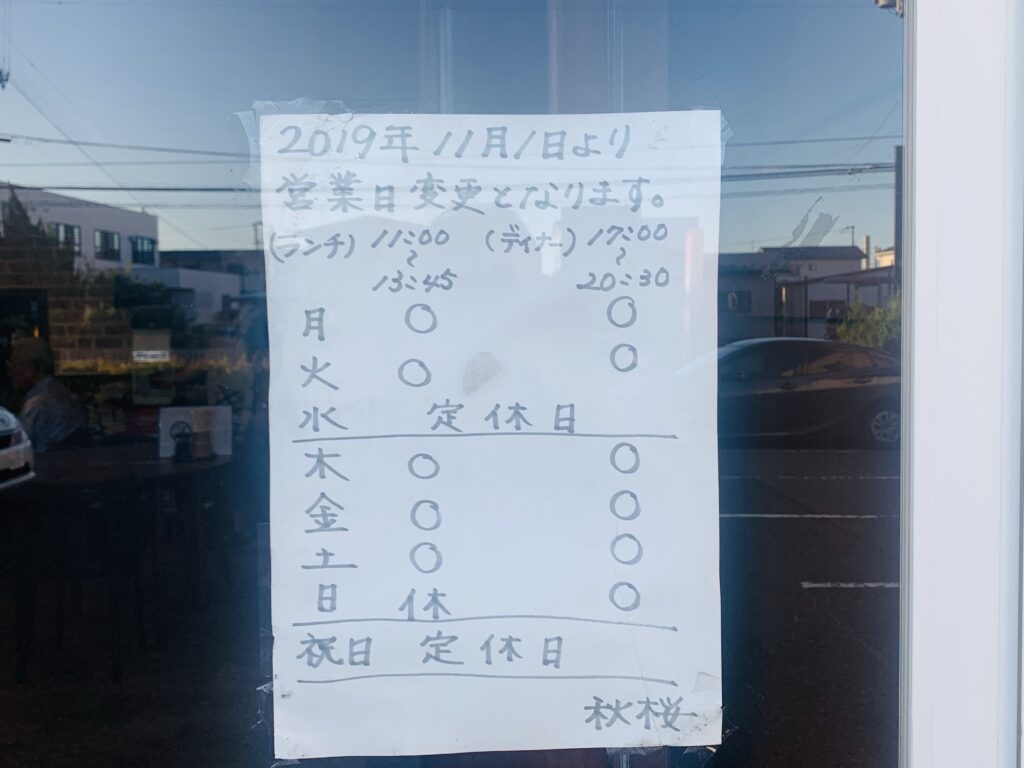 2019年 11月1日より
営業日変更となります。
(ランチ) 11:00 〜 13:45 (ディナー) 17:00 〜 20:30
月 ○ ○
火 ○ ○
水 定休日
木 ○ ○
金 ○ ○
土 ○ ○
日 休 ○
祝日 定休日
秋桜